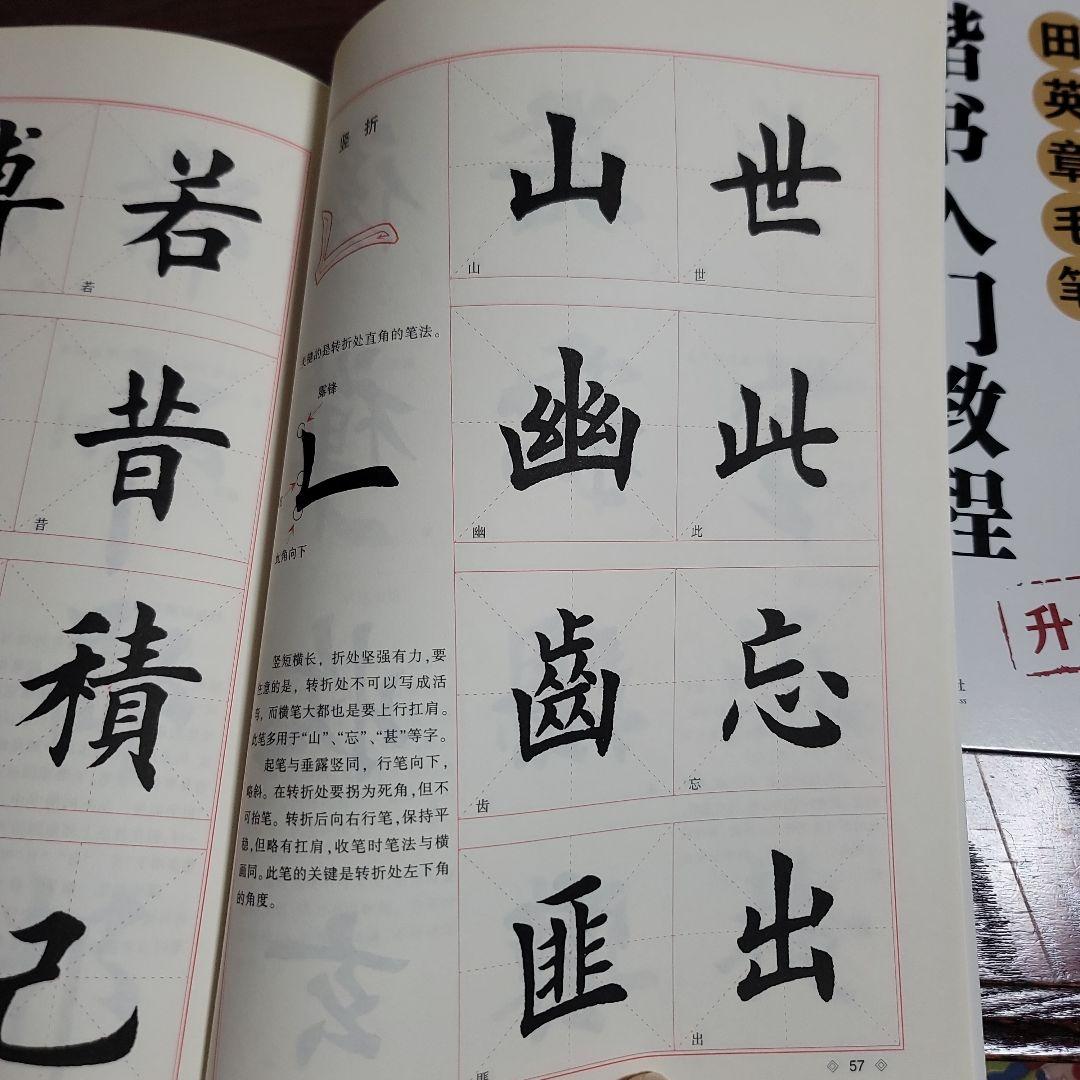 若
若
昔
昔
積
己
竖 折
的是转折处直角的笔法。
露锋
角向下
竖短横长，折处坚强有力，要
意的是，转折处不可以写成活
，而横笔大都也是要上行扛肩。
此笔多用于“山”、“忘”、“甚”等字。
起笔与垂露竖同，行笔向下，
略斜。在转折处要拐为死角，但不
可抬笔。转折后向右行笔，保持平
稳，但略有扛肩，收笔时笔法与横
画同。此笔的关键是转折处左下角
的角度。
山 世
山 世
幽 此
幽 此
齒 忘
齿 忘
匪 出
匪 出
57
田英章毛笔
楷书入门教程
升
社